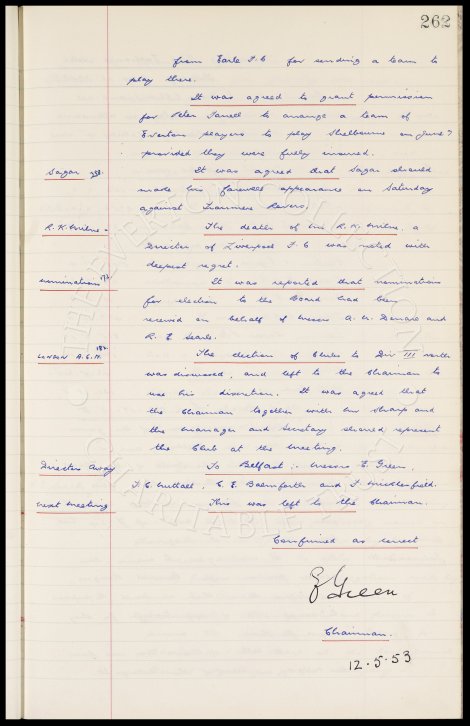 262
from Earle F.C for sending a team to
play there.
It was agreed to grant permission
for Peter Farrell to arrange a team of
Everton players to play Shelbourne on June 7
provided they were fully insured.
Sagar 258. It was agreed that Sagar should
make his farewell appearance on Saturday
against Tranmere Rovers.
R.K. Milne - The death of Mr R.K. Milne, a
Director of Liverpool F.C was noted with
deepest regret.
Nominations It was reported that nominations
for election to the Board had been
received on behalf of Messrs A. W. and
R. E Searle.
London A.G.M. 182. The election of Clubs to Div III north
was discussed, and left to the Chairman to
use his discretion. It was agreed that
the Chairman together with Mr Sharp and
the Manager and Secretary should represent
the Club at the meeting.
Directors Away To Belfast :- Messrs E. Green,
T. C Nuttall, C. E Balmforth and F. Micklesfield.
Next Meeting This was left to the Chairman.
Confirmed as correct
E Green
Chairman.
12.5.53
THE EVERTON COLLECTION
CHARITABLE TRUST